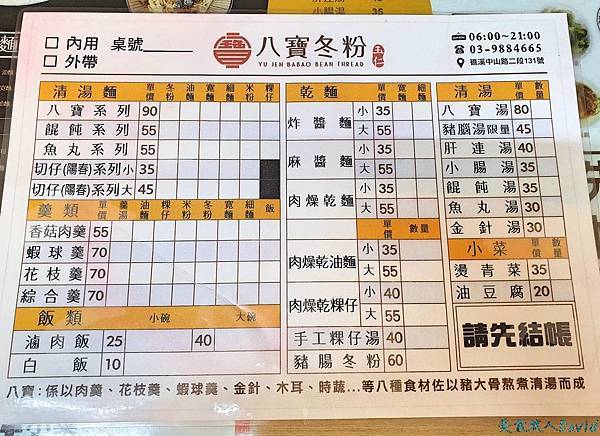 □ 內用 桌號____
□ 外帶
八寶冬粉 玉仁
YU JEN BABAO BEAN THREAD
06:00~21:00
03-9884665
礁溪中山路二段131號
清湯麵 單價 冬粉 油麵 寬麵 細麵 米粉 粿仔
八寶系列 90
餛飩系列 55
魚丸系列 55
切仔(陽春)系列 小 35
切仔(陽春)系列 大 45
羹類 單價 羹湯 油麵 粿仔 米粉 冬粉 寬麵 細麵 飯
香菇肉羹 55
蝦球羹 70
花枝羹 70
綜合羹 70
飯類 小碗 大碗
滷肉飯 25 40
白飯 10
乾麵 單價 油麵 寬麵 細麵 米粉
炸醬麵 小 35
大 55
麻醬麵 小 35
大 55
肉燥乾麵 小 35
大 55
單價 數量
肉燥乾油麵 小 35
大 55
肉燥乾粿仔 小 40
大 55
手工粿仔湯 40
豬腸冬粉 60
清湯 單價 數量
八寶湯 80
豬腦湯限量 45
肝連湯 40
小腸湯 35
餛飩湯 35
魚丸湯 30
金針湯 30
小菜 單價 數量
燙青菜 35
油豆腐 20
請先結帳
八寶:係以肉羹、花枝羹、蝦球羹、金針、木耳、時蔬...等八種食材佐以豬大骨熬煮清湯而成